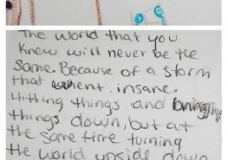 The world that you
Knew will never be the
Same. Because of a storm
that went insane.
Hitting things and bringing
things down, but at
the same time turning
the world upside down